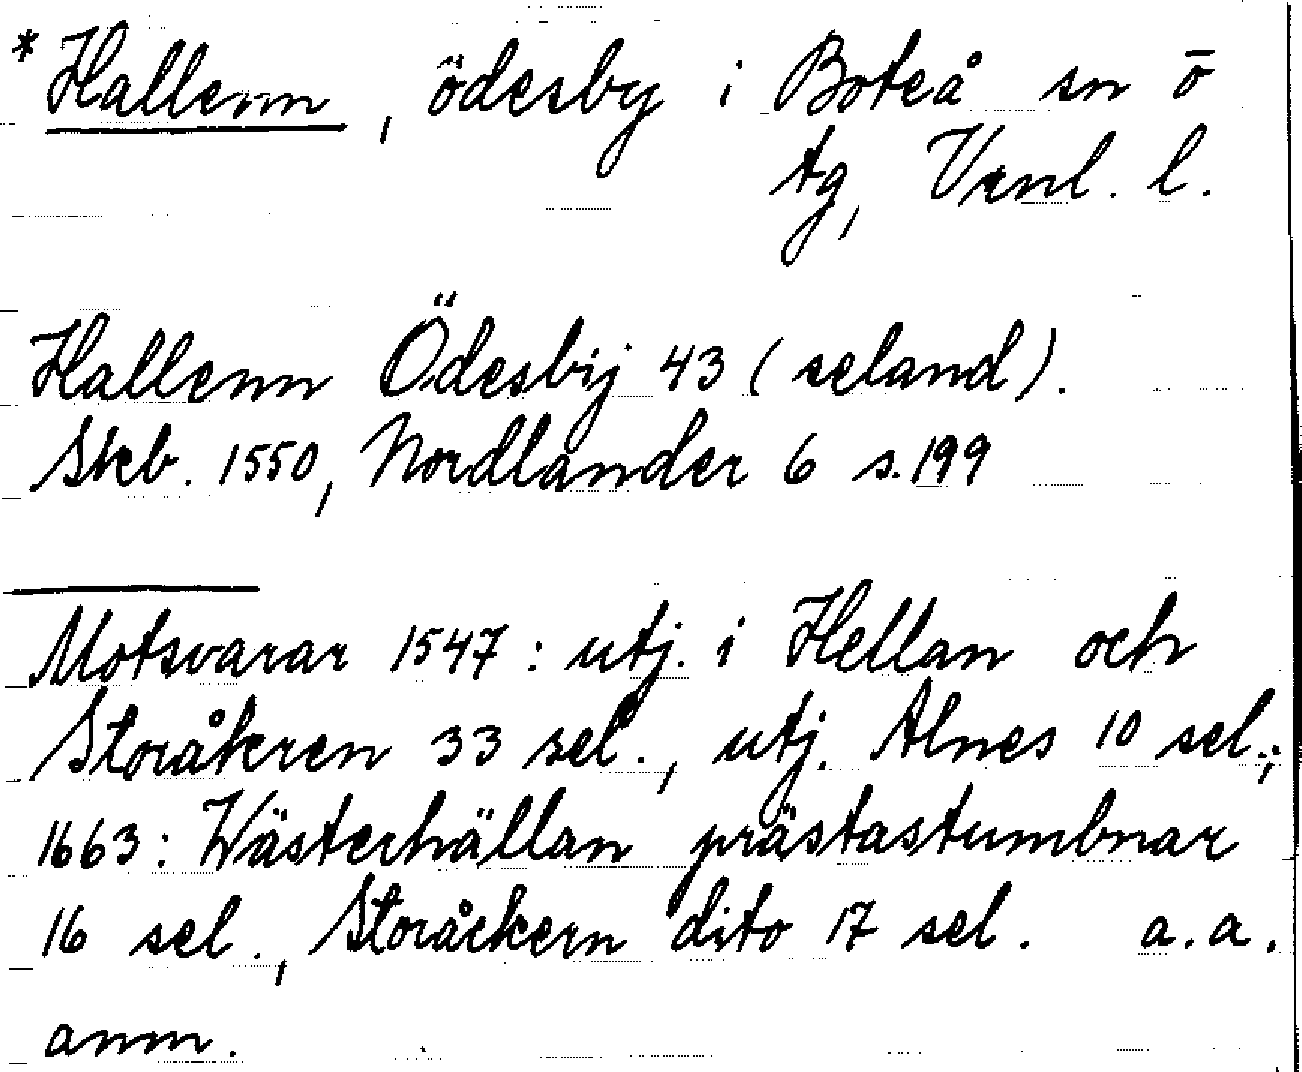 *Hallenn, ödesby i Boteå sn ō
tg, Vnl. l.
Hallenn Ödesbij 43 (seland).
Skb. 1550, Nordlander 6 s.199
Motsvarar 1547: utj. i Hellan och
Storåkren 33 sel., utj. Alnes 10 sel.;
1663: Wästerhällan prästastumbnar
16 sel., Storåckern dito 17 sel. a.a.
anm.